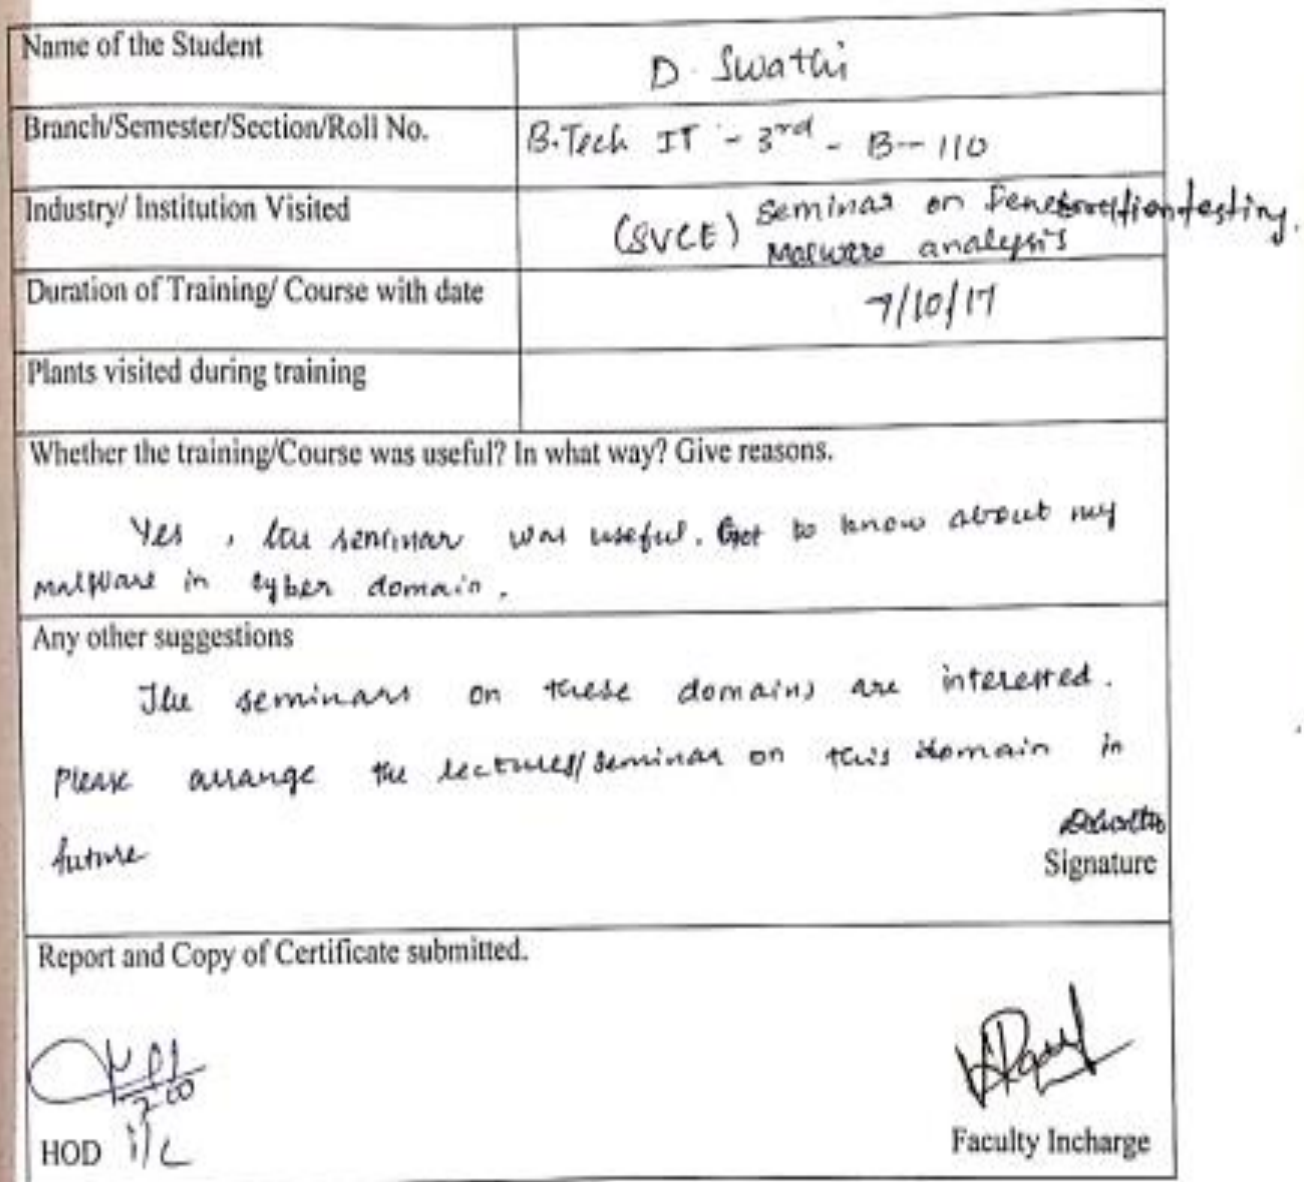 Name of the Student
D. Swathi
Branch/Semester/Section/Roll No.
B.Tech IT - 3rd - B - 110
Industry/ Institution Visited
(SVCE) Seminar on Penetration testing,
Malware analysis
Duration of Training/ Course with date
7/10/17
Plants visited during training
Whether the training/Course was useful? In what way? Give reasons.
Yes, seminar was useful. Got to know about my
malware in cyber domain.
Any other suggestions
The seminars on these domains are interested.
Please arrange the lectures/seminar on this domain in
future
Signature
Report and Copy of Certificate submitted.
HOD i/c
Faculty Incharge